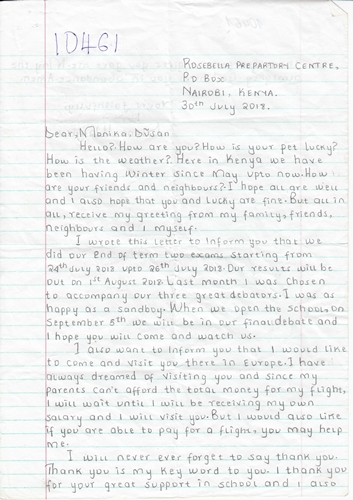 10461
ROSEBELLA PREPARTORY CENTRE.
P.O BOX
NAIROBI, KENYA.
30th JULY 2018.
Dear, Monika. Dusan
Hello? How are you? How is your pet lucky?
How is the weather?. Here in Kenya we have
been having Winter since May upto now. How
are your friends and neighbours?. I hope all are well
and I also hope that you and Lucky are fine. But all in
all, receive my greeting from my family, friends,
neighbours and I myself.
I wrote this letter to inform you that we
did our End of term two exams starting from
24th July 2018 upto 26th July 2018. Our results will be
out on 1st August 2018. Last month I was chosen
to accompany our three great debators. I was as
happy as a sandboy. When we open the school, on
September 5th we will be in our final debate and
I hope you will come and watch us.
I also want to inform you that I would like
to come and visit you there in Europe. I have
always dreamed of visiting you and since my
parents Can't afford the total money for my flight,
I will wait until I will be receiving my own
salary and I will visit you. But I would also like
if you are able to pay for a flight, you may help
me.
I will never ever forget to say thank you.
Thank you is my key word to you. I thank you
for your great support in school and I also